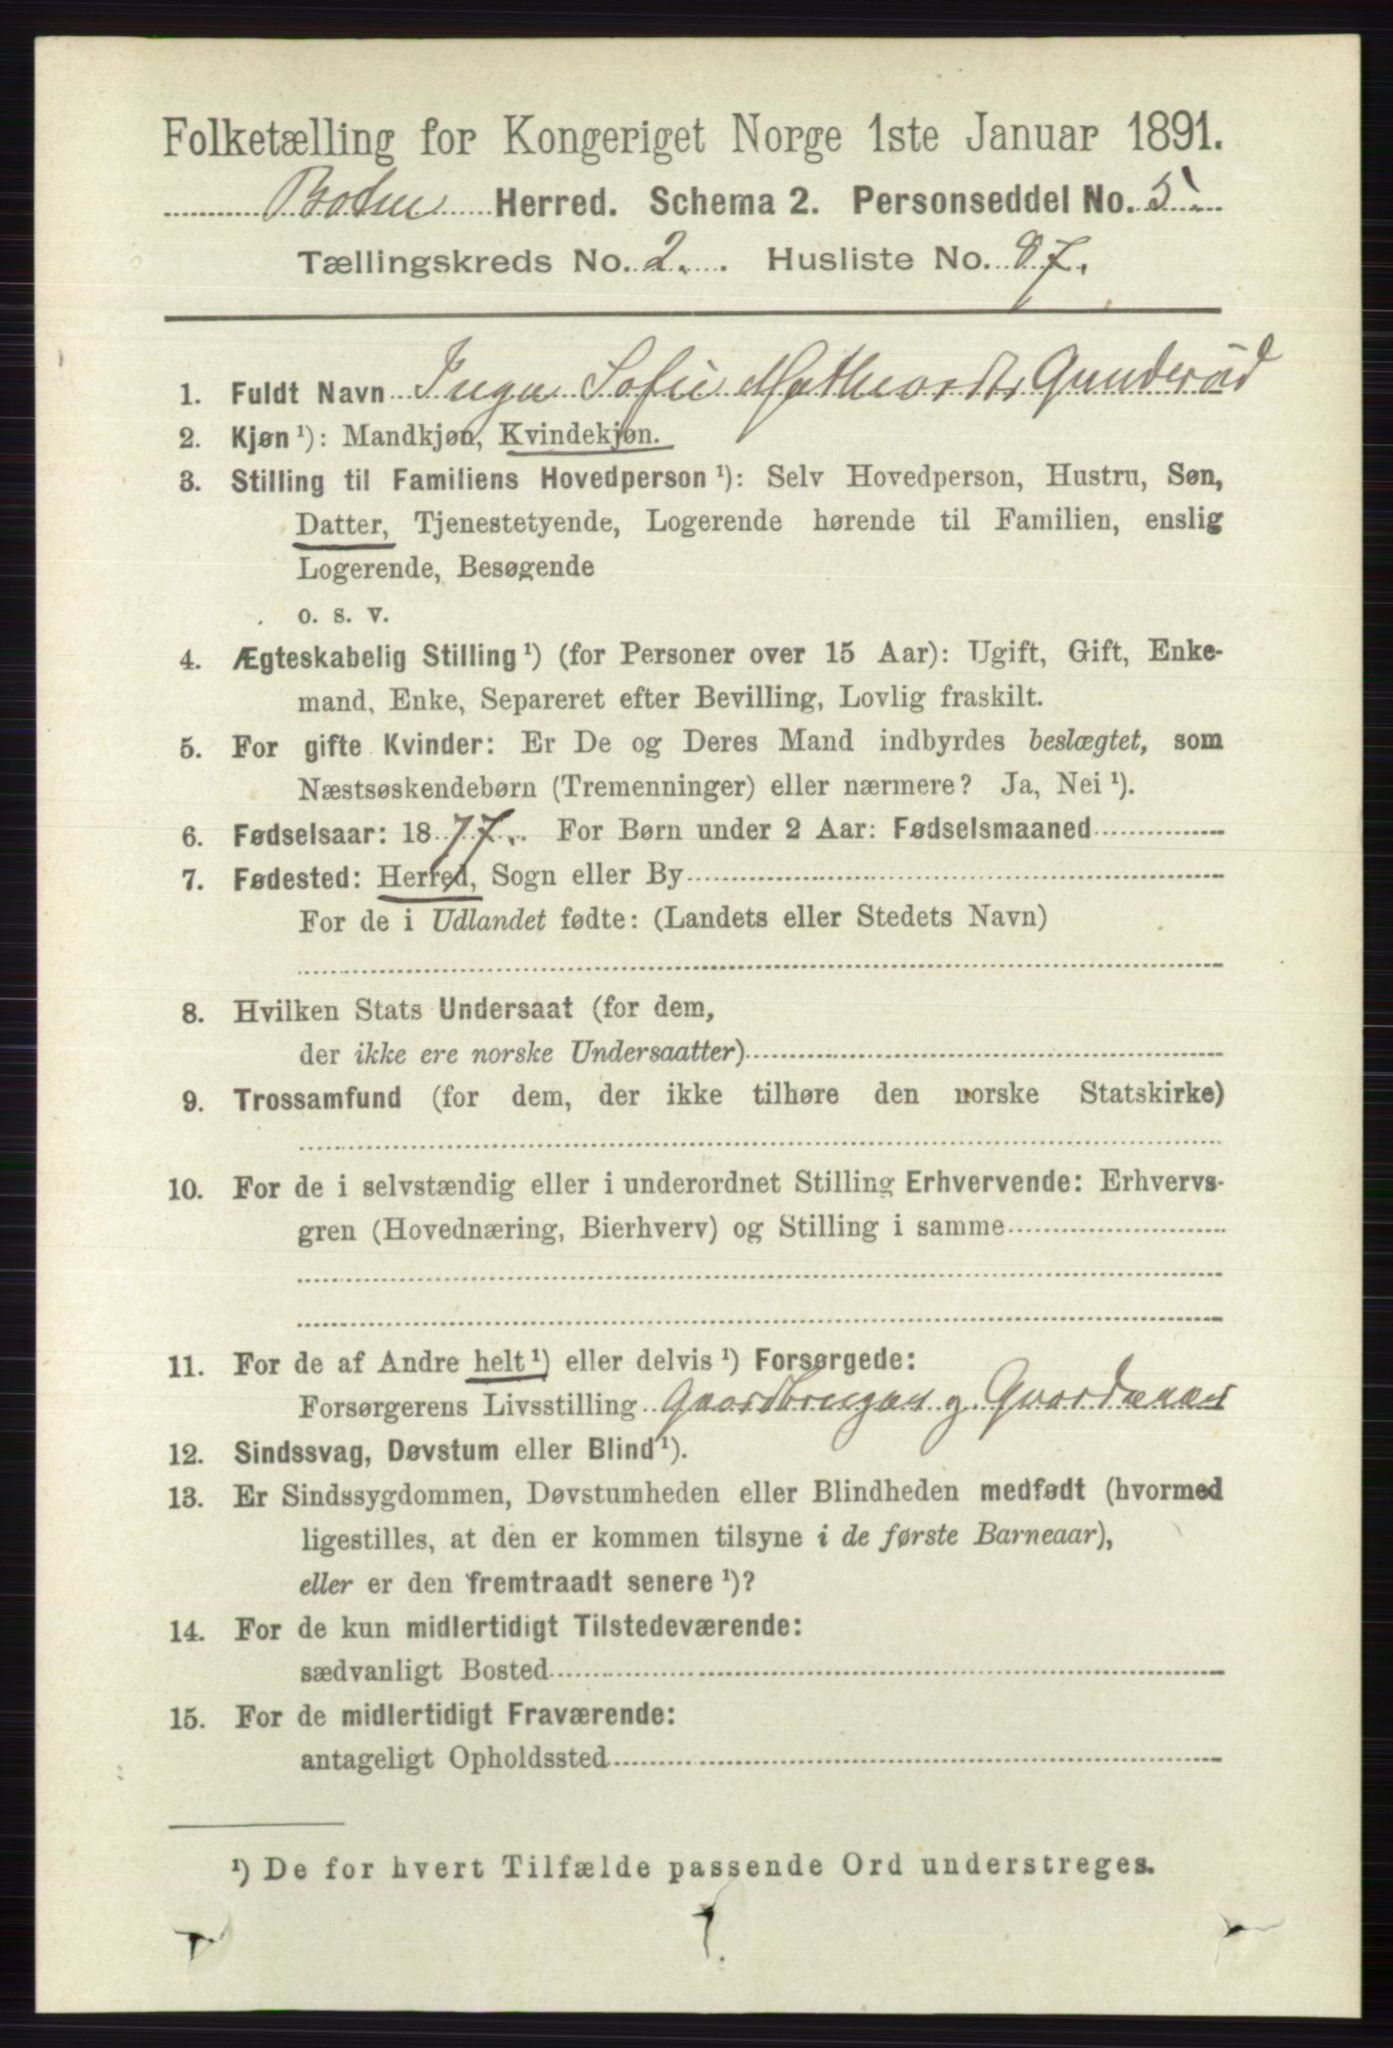 Folketælling for Kongeriget Norge 1ste Januar 1891.
Botne Herred. Schema 2. Personseddel No. 5.
Tællingskreds No. 2. Husliste No. 87.
1. Fuldt Navn Inga Sofie Gunderöd
2. Kjøn ¹): Mandkjøn, Kvindekjøn.
3. Stilling til Familiens Hovedperson ¹): Selv Hovedperson, Hustru, Søn,
Datter, Tjenestetyende, Logerende hørende til Familien, enslig
Logerende, Besøgende
o. s. v.
4. Ægteskabelig Stilling ¹) (for Personer over 15 Aar): Ugift, Gift, Enke-
mand, Enke, Separeret efter Bevilling, Lovlig fraskilt.
5. For gifte Kvinder: Er De og Deres Mand indbyrdes beslægtet, som
Næstsøskendebørn (Tremenninger) eller nærmere? Ja, Nei ¹).
6. Fødselsaar: 1877. For Børn under 2 Aar: Fødselsmaaned
7. Fødested: Herred, Sogn eller By
For de i Udlandet fødte: (Landets eller Stedets Navn)
8. Hvilken Stats Undersaat (for dem,
der ikke ere norske Undersaatter)
9. Trossamfund (for dem, der ikke tilhøre den norske Statskirke)
10. For de i selvstændig eller i underordnet Stilling Erhvervende: Erhvervs-
gren (Hovednæring, Bierhverv) og Stilling i samme
11. For de af Andre helt ¹) eller delvis ¹) Forsørgede:
Forsørgerens Livsstilling Gaardbruger g. Gaardeier
12. Sindssvag, Døvstum eller Blind ¹).
13. Er Sindssygdommen, Døvstumheden eller Blindheden medfødt (hvormed
ligestilles, at den er kommen tilsyne i de første Barneaar),
eller er den fremtraadt senere ¹)?
14. For de kun midlertidigt Tilstedeværende:
sædvanligt Bosted
15. For de midlertidigt Fraværende:
antageligt Opholdssted
¹) De for hvert Tilfælde passende Ord understreges.